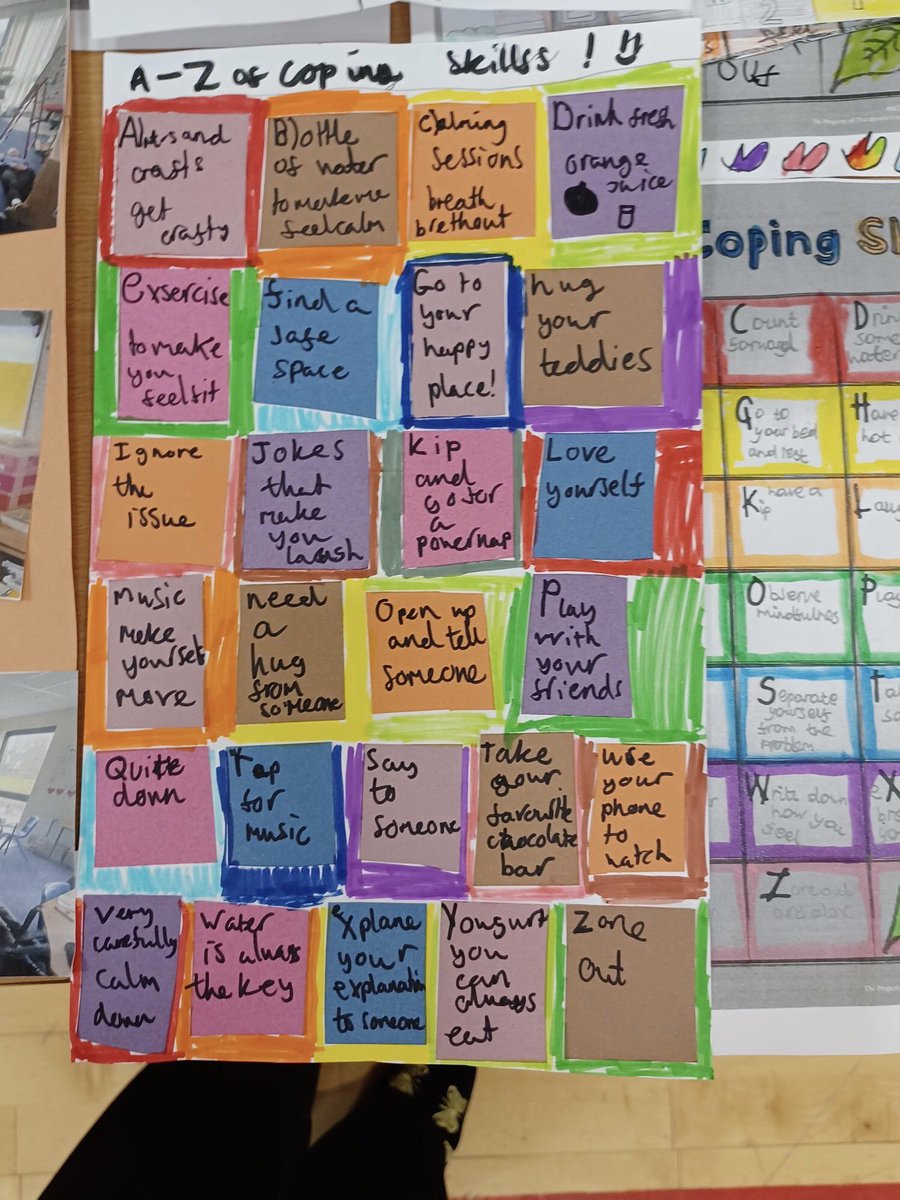 A-Z of Coping skillss !
A)arts and
crafts
get
crafty
B)ottle
of water
to make me
feel calm
C)alming
sessions
breath
brethout
Drink fresh
orange
Juice
Exsercise
to make
you
feel fit
find a
safe
space
Go to
your
happy
place!
hug
your
teddies
Ignore
the
issue
Jokes
that
make
you
laugh
Kip
and
go for
a
power nap
Love
yourself
Music
make
yourself
move
need
a
hug
from
someone
Open up
and tell
someone
Play
with
your
friends
Quite
down
Tap
for
music
Say
to
someone
Take
your
favourite
chocolate
bar
use
your
phone
to
watch
very
carefully
calm
down
Water
is always
the key
explane
your
explanation
to someone
Yougurt
you
can
always
eat
Zone
out
out
Coping
Count
forward
Drin
some
water
Go to
your bed
and rest
Have
hot
Kip have a
Observe
mindfulness
Play
Separate
yourself
from the
problem
Write down
how you
feel
Zone out
and relax
The Property